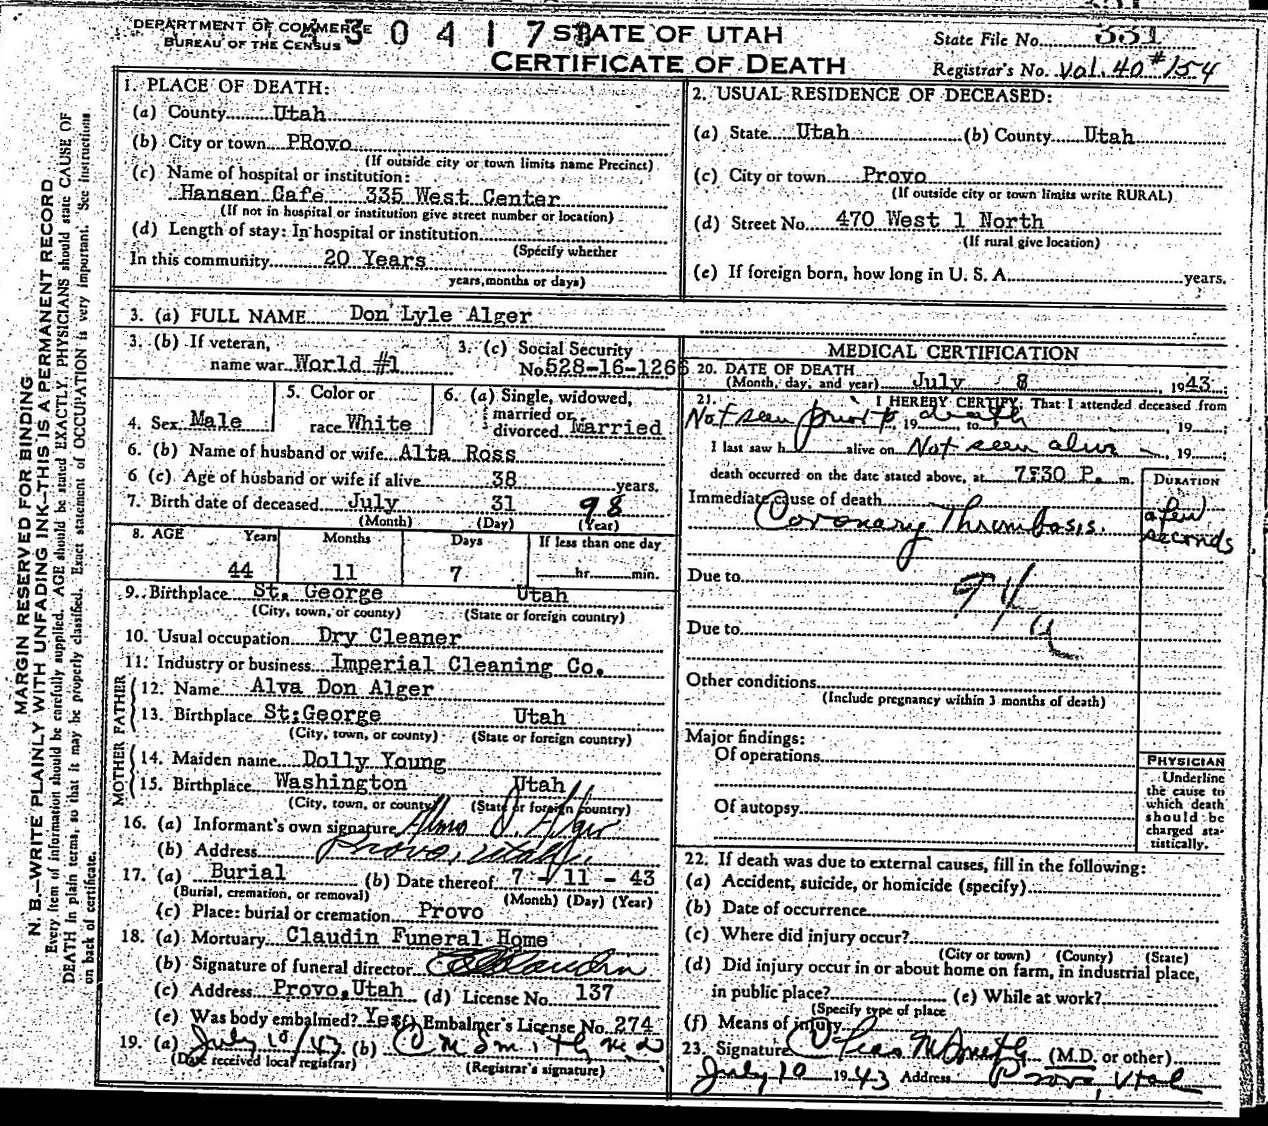 DEPARTMENT OF COMMERCE
BUREAU OF THE CENSUS
STATE OF UTAH
CERTIFICATE OF DEATH
State File No. 331
Registrar's No. Vol. 40 #154
MARGIN RESERVED FOR BINDING
N. B.—WRITE PLAINLY WITH UNFADING INK—THIS IS A PERMANENT RECORD
Every item of information should be carefully supplied. AGE should be stated EXACTLY. PHYSICIANS should state CAUSE OF
DEATH in plain terms, so that it may be properly classified. Exact statement of OCCUPATION is very important. See Instructions
on back of certificate.
1. PLACE OF DEATH:
(a) County Utah
(b) City or town PRovo
(If outside city or town limits name Precinct)
(c) Name of hospital or institution:
Hansen Cafe 335 West Center
(If not in hospital or institution give street number or location)
(d) Length of stay: In hospital or institution
(Specify whether
In this community 20 Years
years, months or days)
2. USUAL RESIDENCE OF DECEASED:
(a) State Utah (b) County Utah
(c) City or town Provo
(If outside city or town limits write RURAL)
(d) Street No. 470 West 1 North
(If rural give location)
(e) If foreign born, how long in U. S. A. years.
3. (a) FULL NAME Don Lyle Alger
3. (b) If veteran,
name war World #1
3. (c) Social Security
No. 528-16-1266
4. Sex Male
5. Color or
race White
6. (a) Single, widowed,
married or
divorced Married
6. (b) Name of husband or wife Alta Ross
6 (c) Age of husband or wife if alive 38 years.
7. Birth date of deceased July 31 98
(Month) (Day) (Year)
8. AGE Years Months Days If less than one day
44 11 7 hr. min.
9. Birthplace St. George Utah
(City, town, or county) (State or foreign country)
10. Usual occupation Dry Cleaner
11. Industry or business Imperial Cleaning Co.
FATHER
12. Name Alva Don Alger
13. Birthplace St;George Utah
(City, town, or county) (State or foreign country)
MOTHER
14. Maiden name Dolly Young
15. Birthplace Washington Utah
(City, town, or county) (State or foreign country)
16. (a) Informant's own signature Alger
(b) Address Provo, Utah
17. (a) Burial (b) Date thereof 7 - 11 - 43
(Burial, cremation, or removal) (Month) (Day) (Year)
(c) Place: burial or cremation Provo
18. (a) Mortuary Claudin Funeral Home
(b) Signature of funeral director Claudin
(c) Address Provo, Utah (d) License No. 137
(e) Was body embalmed? Yes (f) Embalmer's License No. 274
19. (a) July 10/43 (b) C M Smith MD
(Date received local registrar) (Registrar's signature)
MEDICAL CERTIFICATION
20. DATE OF DEATH
(Month, day, and year) July 8, 1943
21. I HEREBY CERTIFY, That I attended deceased from
Not seen prior to death, 19 , to , 19 ;
I last saw h alive on Not seen alive, 19 ;
death occurred on the date stated above, at 7:30 P. m.
DURATION
Immediate cause of death
Coronary Thrombosis.
a few
seconds
Due to
Due to
Other conditions
(Include pregnancy within 3 months of death)
Major findings:
Of operations
Of autopsy
PHYSICIAN
Underline
the cause to
which death
should be
charged sta-
tistically.
22. If death was due to external causes, fill in the following:
(a) Accident, suicide, or homicide (specify)
(b) Date of occurrence
(c) Where did injury occur?
(City or town) (County) (State)
(d) Did injury occur in or about home on farm, in industrial place,
in public place? (e) While at work?
(Specify type of place
(f) Means of injury
23. Signature Chas M Smith (M.D. or other)
July 10 1943 Address Provo, Utah